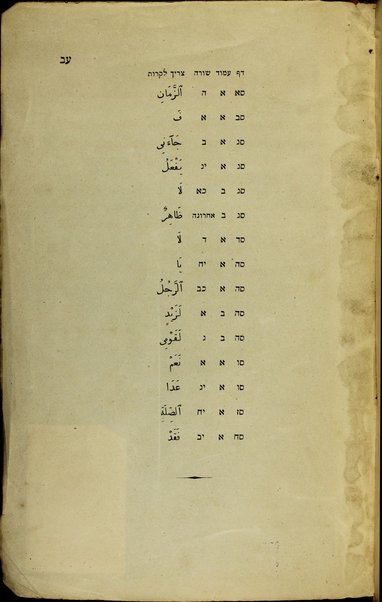 עב
דף עמוד שורה צריך לקרות
סא א ה اَلزَّمَانِ
סב א א فَ
סג א ב جَآءَنِى
סג א יג يَفْعَلُ
סג ב כא لَا
סג ב אחרונה ظَاهِرٌ
סד א ד لَا
סה א יח يَا
סה א כב اَلرَّجُلُ
סה ב א لَزَيْدٍ
סה ב ג لَقَوْمِى
סו א א نَعَمْ
סו א יג عَدَا
סז א יח اَلصِّلَةِ
סח א יב نَقَدْ